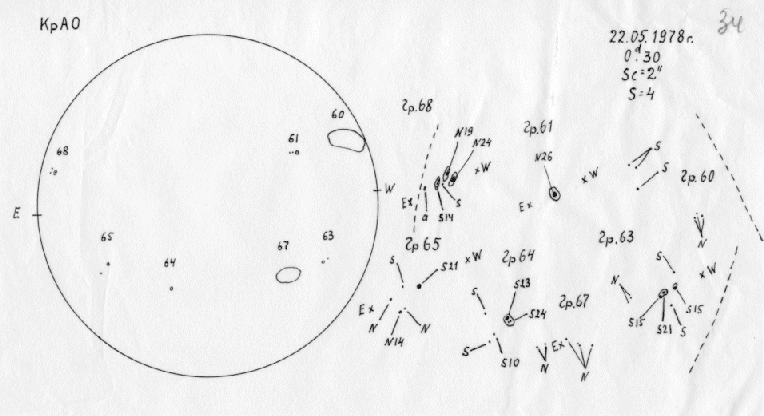 КрАО
34
22.05.1978г.
0ᵈ.30
Sc=2"
S=4
60
61
68
E
W
65
64
67
63
гр.68
N19
N24
xW
Ex
a
S14
S
гр.61
N26
xW
Ex
S
S
гр.60
N
гр.65
S
S21
xW
Ex
N
N14
N
гр.64
S
S23
S24
S
S10
гр.67
Ex
N
N
гр.63
S
xW
N
S15
S15
S21
S